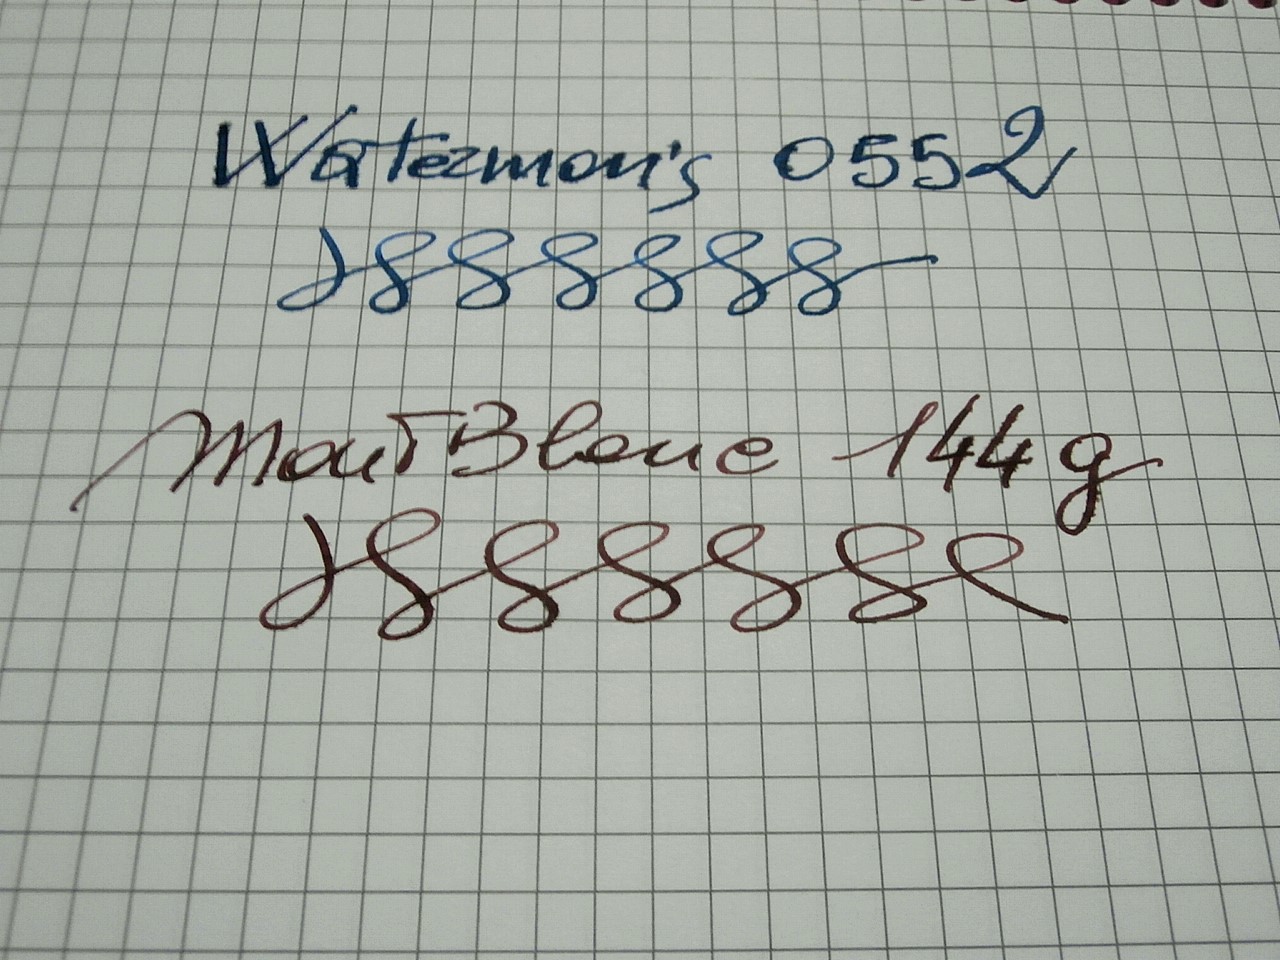 Waterman's 0552
MontBlanc 144g